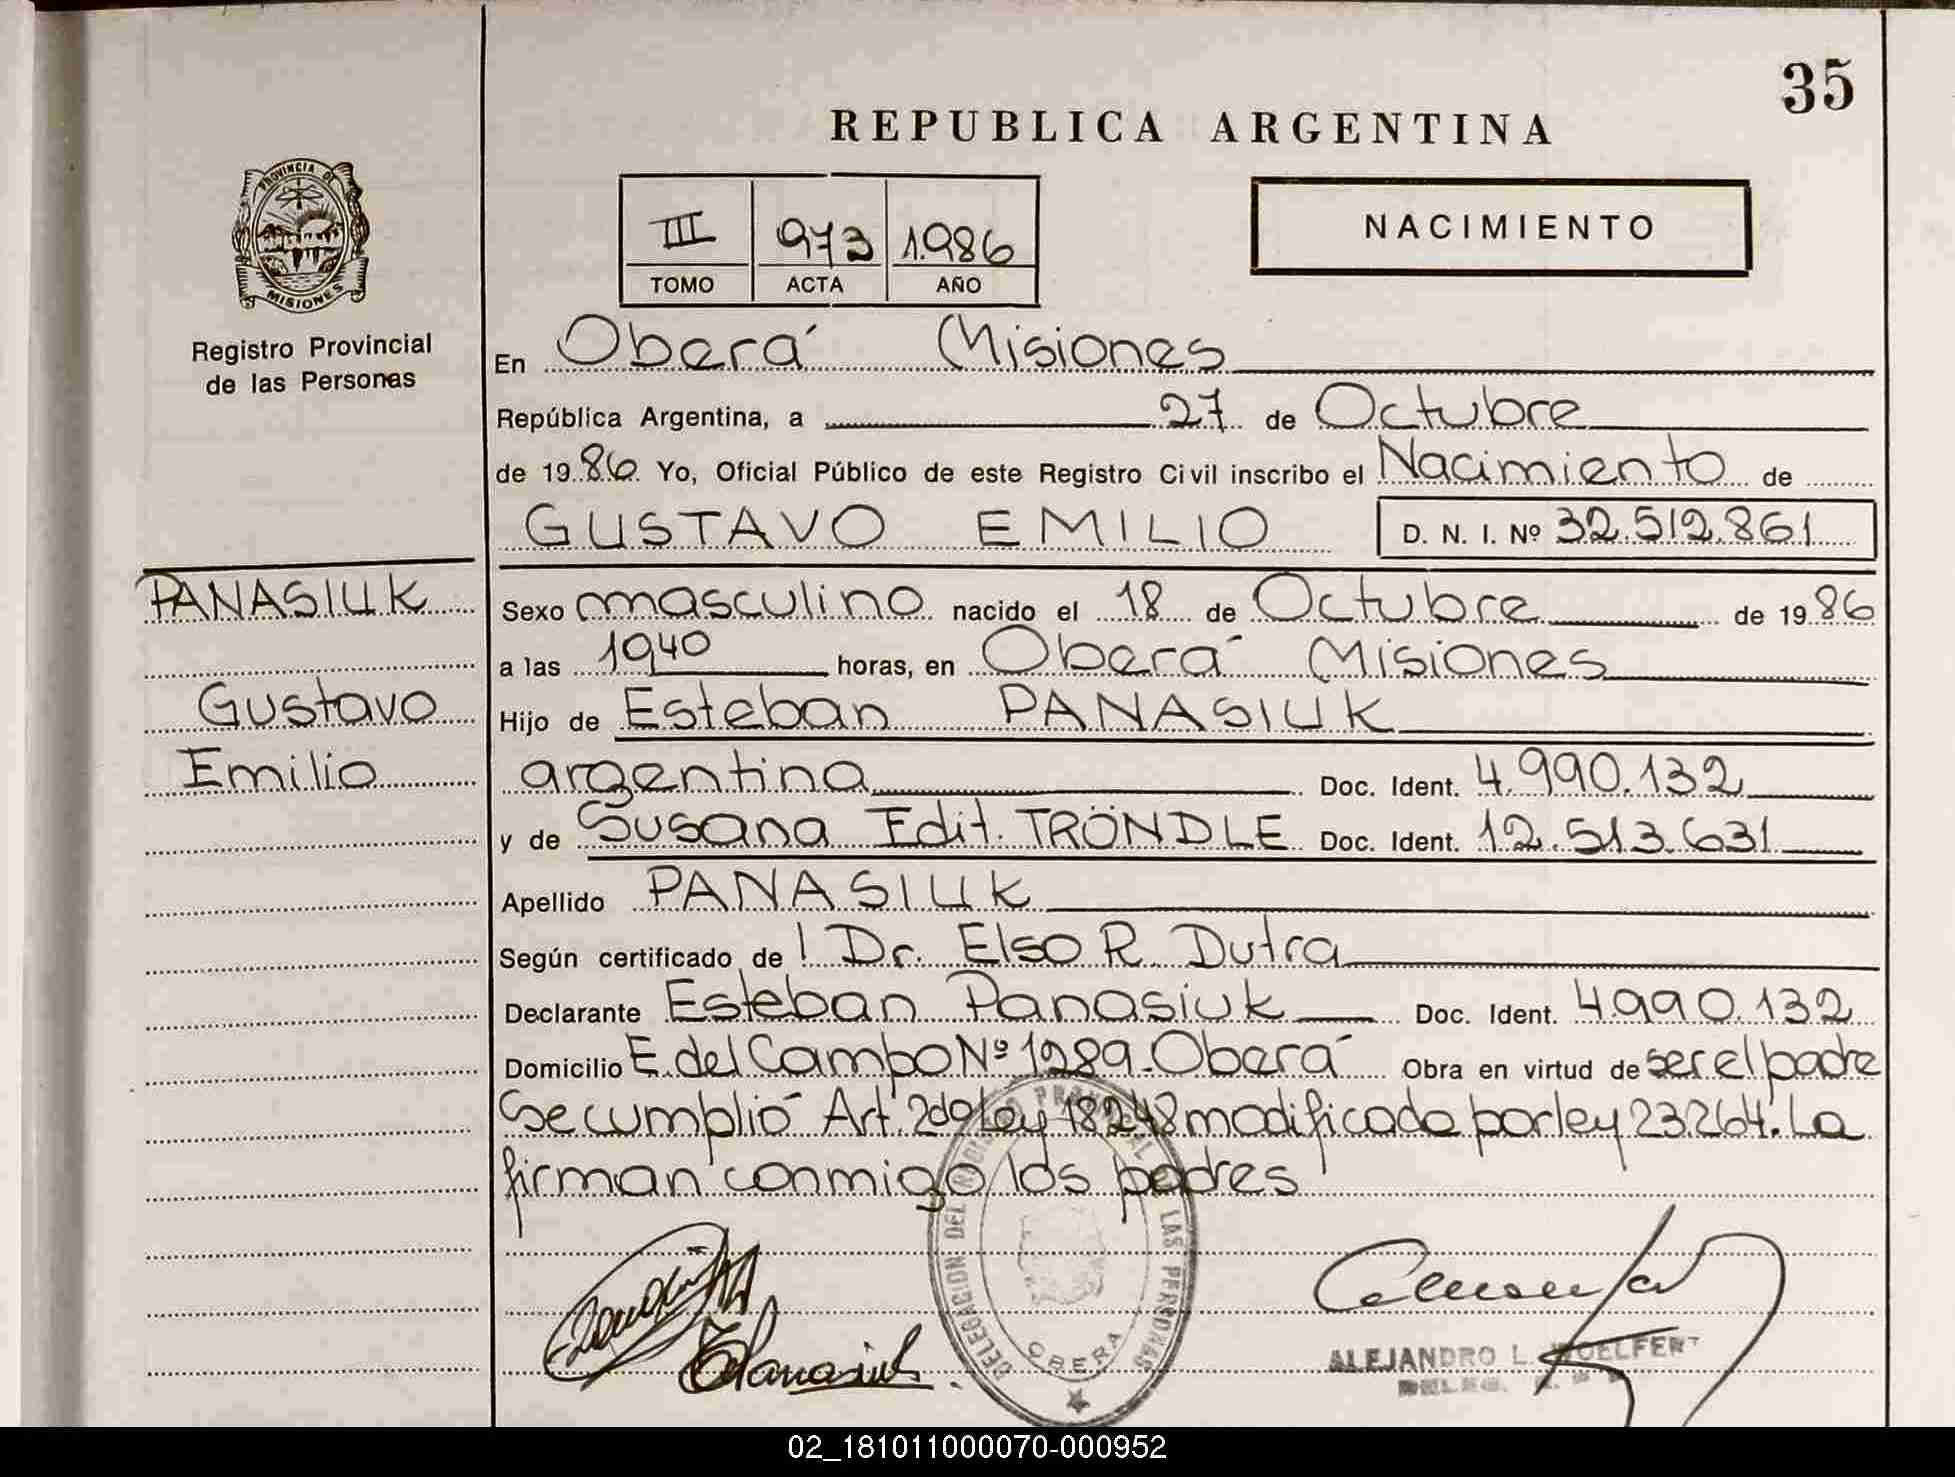 35
REPUBLICA ARGENTINA
PROVINCIA DE
MISIONES
Registro Provincial
de las Personas
III 973 1.986
TOMO ACTA AÑO
NACIMIENTO
En Oberá Misiones
República Argentina, a 27 de Octubre
de 1986 Yo, Oficial Público de este Registro Civil inscribo el Nacimiento de
GUSTAVO EMILIO D. N. I. Nº 32.512.861
PANASIUK
Gustavo
Emilio
Sexo masculino nacido el 18 de Octubre de 1986
a las 1940 horas, en Oberá Misiones
Hijo de Esteban PANASIUK
argentina Doc. Ident. 4.990.132
y de Susana Edit. TRÖNDLE Doc. Ident. 12.513.631
Apellido PANASIUK
Según certificado de l Dr. Elso R. Dutra
Declarante Esteban Panasiuk Doc. Ident. 4.990.132
Domicilio E. del Campo Nº 1289. Oberá Obra en virtud de ser el padre
Se cumplió Art. 2do ley 18248 modificada por ley 23264. La
firman conmigo los padres
DELEGACION DEL REGISTRO PROVINCIAL DE LAS PERSONAS
OBERA
EPanasiuk
ALEJANDRO L.
02_181011000070-000952